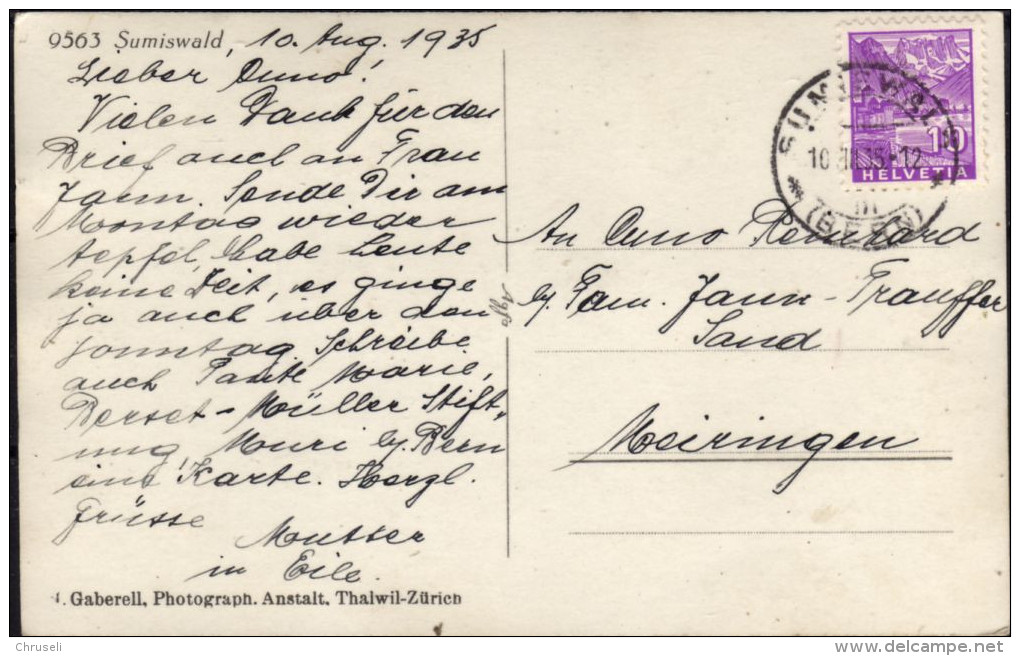 9563 Sumiswald, 10. Aug. 1935
Lieber Onno!
Vielen Dank für den
Brief auch an Frau
Jaun. Sende Dir am
Montag wieder
äpfel, habe heute
keine Zeit, es ginge
ja auch über den
Sonntag. Schreibe
auch Tante Marie,
Berset-Müller Stift-
ung, Muri b/. Bern
eine Karte. Herzl.
Grüsse
Mutter
in Eile.
J. Gaberell, Photograph. Anstalt, Thalwil-Zürich
SUMISWALD
10
HELVETIA
(BERN)
An Onno Reinhard
b/. Fam. Jaun-Trauffer
Sand
Meiringen
Chruseli
delcampe.net